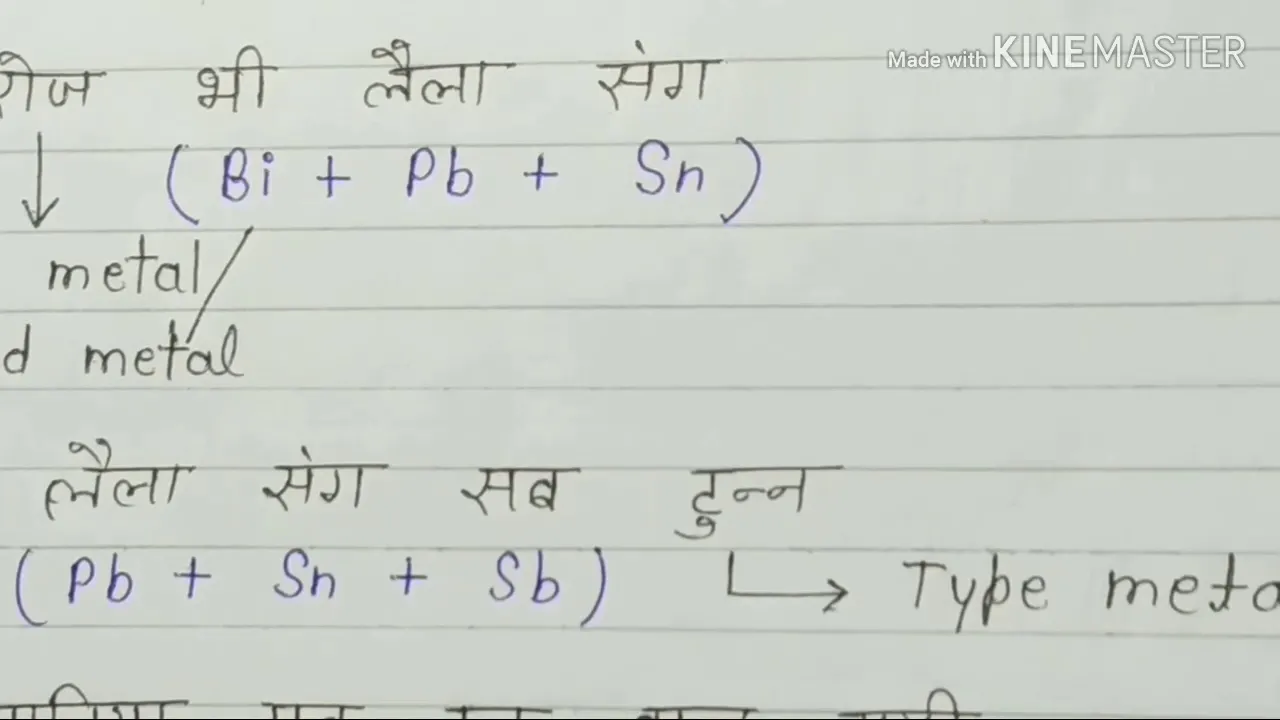 Made with KINEMASTER
रोज भी लैला संग
( Bi + Pb + Sn )
metal/
d metal
लैला संग सब टुन्न
( Pb + Sn + Sb ) Type meta